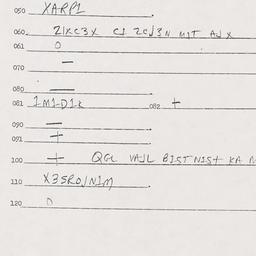 050 XARP1.
060. 21XC3X C1 2CJ3N M1T AJX
061 0
070 —
080 —
081 1M1D1K 082 +
090 —
091 +
100 + QGL VAJL B1STN1S+ KA
110 X3SR0JN1M.
120 0